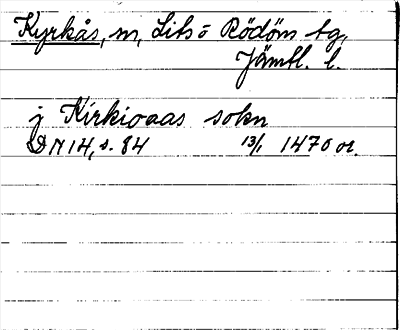 Kyrkås, sn, Lits o Rödöns tg,
Jämtl. l.
j Kirkioaas sokn
DN 14, s. 84 13/1 1470 or.